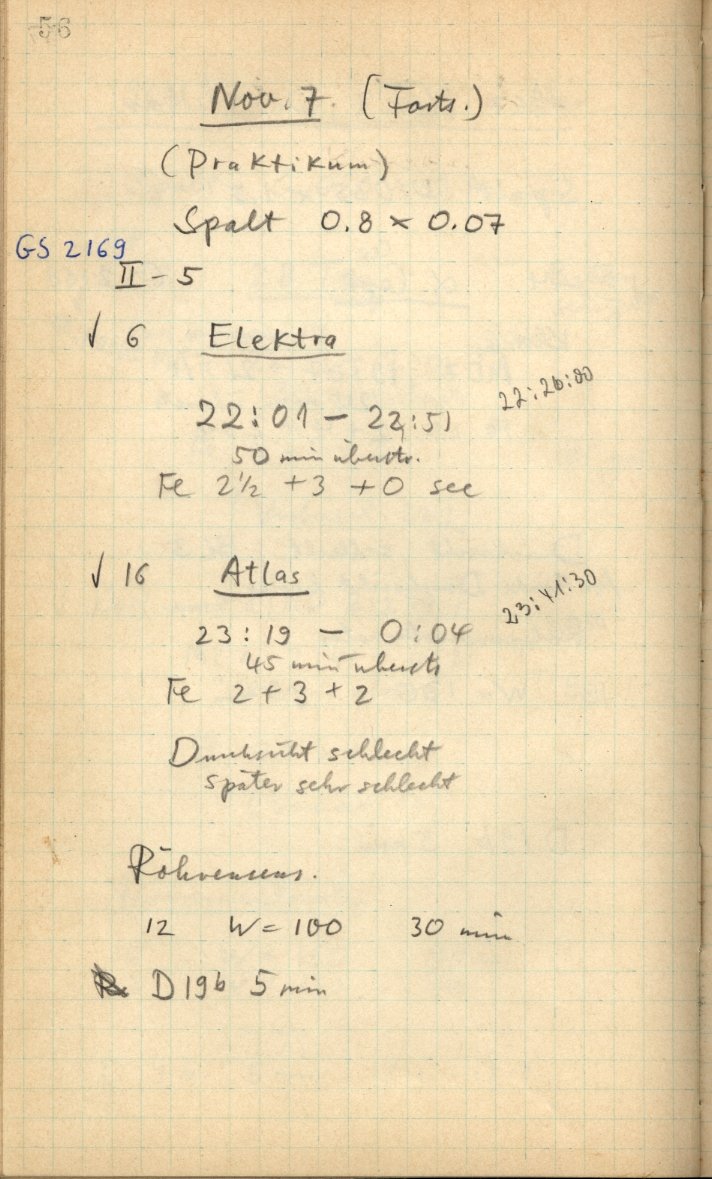 56
Nov. 7 (Forts.)
(Praktikum)
Spalt 0.8 × 0.07
GS 2169
II - 5
√ 6 Elektra
22:26:00
22:01 — 22:51
50 min überstr.
Fe 2½ + 3 + 0 sec
√ 16 Atlas
23:41:30
23:19 — 0:04
45 min überstr
Fe 2 + 3 + 2
Durchsicht schlecht
später sehr schlecht
Röhrensens.
12 W = 100 30 min
D19b 5 min